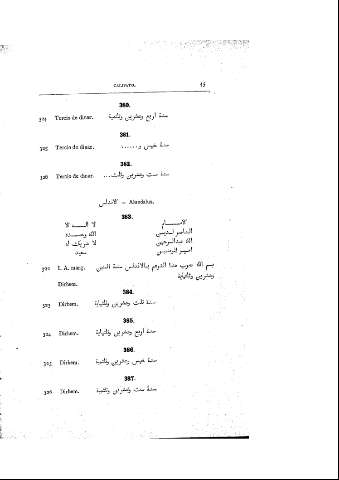 CALIFATO. 45
360.
324 Tercio de dinar. سنة اربع وعشرين وثلثمية
361.
325 Tercio de dinar. سنة خمس و......
362.
326 Tercio de dinar. سنة ست وعشرين وثلث...
الاندلس — Alandalus.
363.
الامام لا اله الا
الناصر لدين الله وحده
الله عبدالرحمن لا شريك له
امير المومنين سعيد
322 I. A. marg. بسم الله ضرب هذا الدرهم بالاندلس سنة اثنين
وعشرين وثلثماية
Dirhem.
364.
323 Dirhem. سنة ثلث وعشرين وثلثماية
365.
324 Dirhem. سنة اربع وعشرين وثلثماية
366.
325 Dirhem. سنة خمس وعشرين وثلثمية
367.
326 Dirhem. سنة ست وعشرين وثلثمية